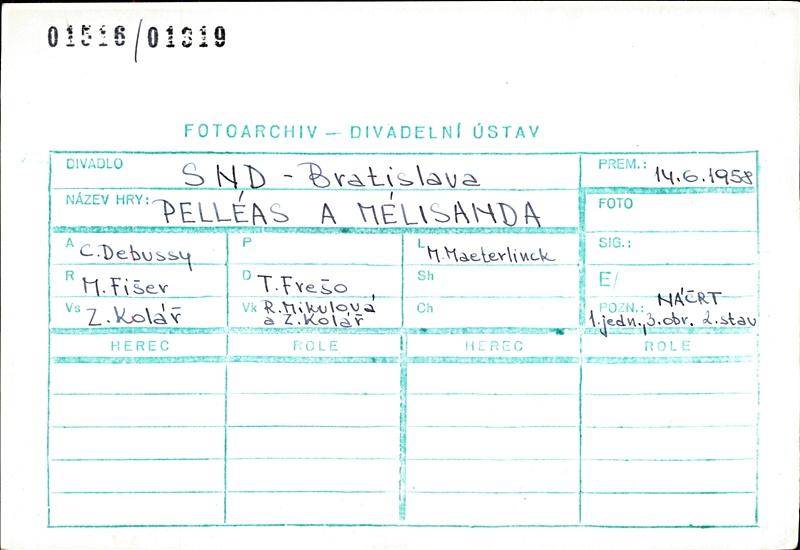 01516/01319
FOTOARCHIV — DIVADELNÍ ÚSTAV
DIVADLO SND - Bratislava
PREM.: 14.6.1958
NÁZEV HRY: PELLÉAS A MÉLISANDA
FOTO
A C. Debussy
P
L M. Maeterlinck
SIG.:
R M. Fišer
D T. Frešo
Sh
E/
Vs Z. Kolář
Vk R. Mikulová a Z. Kolář
Ch
POZN.: NÁČRT
1. jedn., 3. obr. 2. stav
HEREC ROLE HEREC ROLE